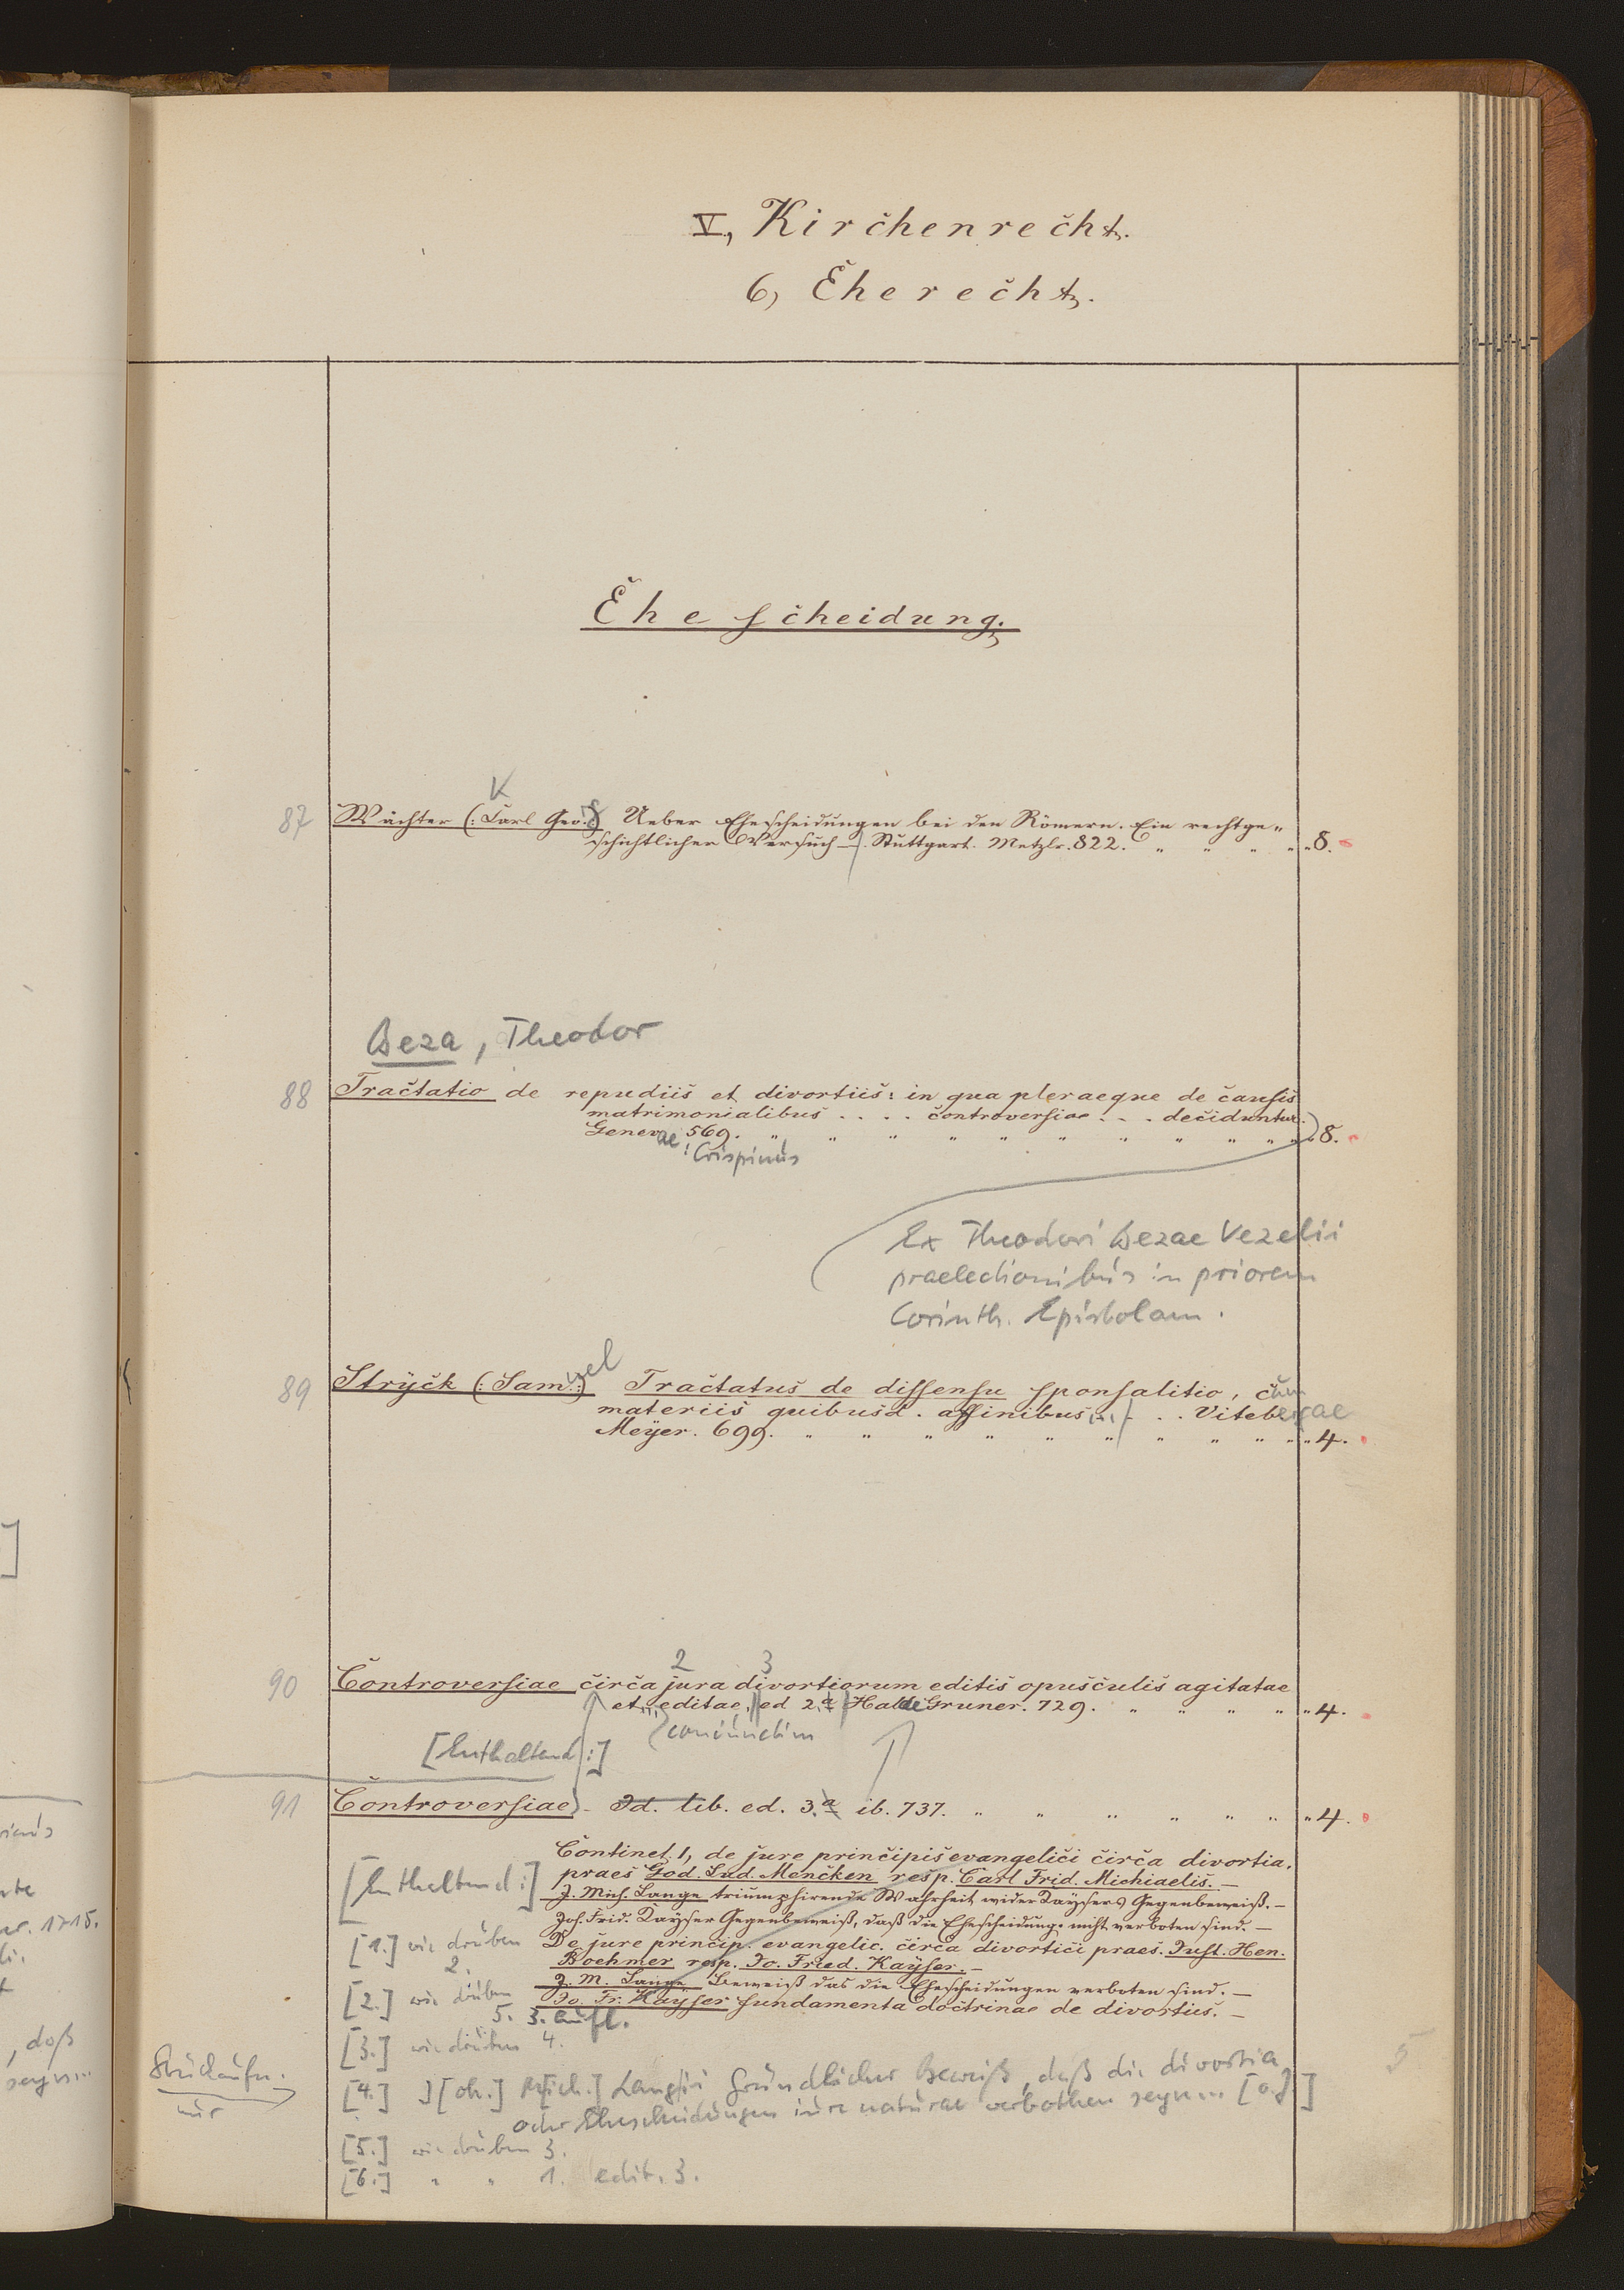 V, Kirchenrecht.
6, Eherecht.
Ehescheidung.
K
87 Wächter (: Carl Geo. :) Ueber Ehescheidungen bei den Römern. Ein rechtge-
schichtlicher Versuch –. Stuttgart. Metzlr. 822. " " " " " 8.
Beza, Theodor
88 Tractatio de repudiis et divortiis: in qua pleraeque de causis
matrimonialibus . . . . controversiae . . . deciduntur.
Genevae 569. " " " " " " " " " " " 8.
: Crispinus
Ex Theodori Bezae Vezelii
praelectionibus in priorem
Corinth. Epistolam.
89 Stryck (: Samuel :) Tractatus de dissensu sponsalitio, cum
materiis quibusd. affinibus ... . . Vitebergae
Meÿer. 699. " " " " " " " " " " 4.
2 3
90 Controversiae circa jura divortiorum editis opusculis agitatae
et editae, ed 2.a Halae Gruner. 729. " " " " " 4.
coniunctim
[Enthaltend:]
91 Controversiae – Id. lib. ed. 3.a ib. 737. " " " " " " " 4.
Continet 1, de jure principis evangelici circa divortia,
[Enthaltend:] praes God. Lud. Mencken resp. Carl Frid. Michiaelis. –
J. Mich. Lange triumphirende Wahrheit wider Kaÿsers Gegenbeweiß. –
Joh. Frid. Kaÿser Gegenbeweiß, daß die Ehescheidung. nicht verboten sind. –
[1.] wie drüben 2. De jure princip. evangelic. circa divortici praes. Just. Hen.
Boehmer resp. Jo. Fried. Kaÿser. –
J. M. Lange Beweiß das die Ehescheidungen verboten sind. –
[2.] wie drüben 5. 3. Aufl. Jo. Fr. Kaÿser fundamenta doctrinae de divortiis. –
[3.] wie drüben 4.
[4.] J[oh.] M[ich.] Langii Gründlicher Beweiß, daß die divortia
oder Ehescheidungen iure naturae verbothen seyn ... [o.J.]
[5.] wie drüben 3.
[6.] " " 1. edit. 3.
nur
5
1715.
, daß
seyn...